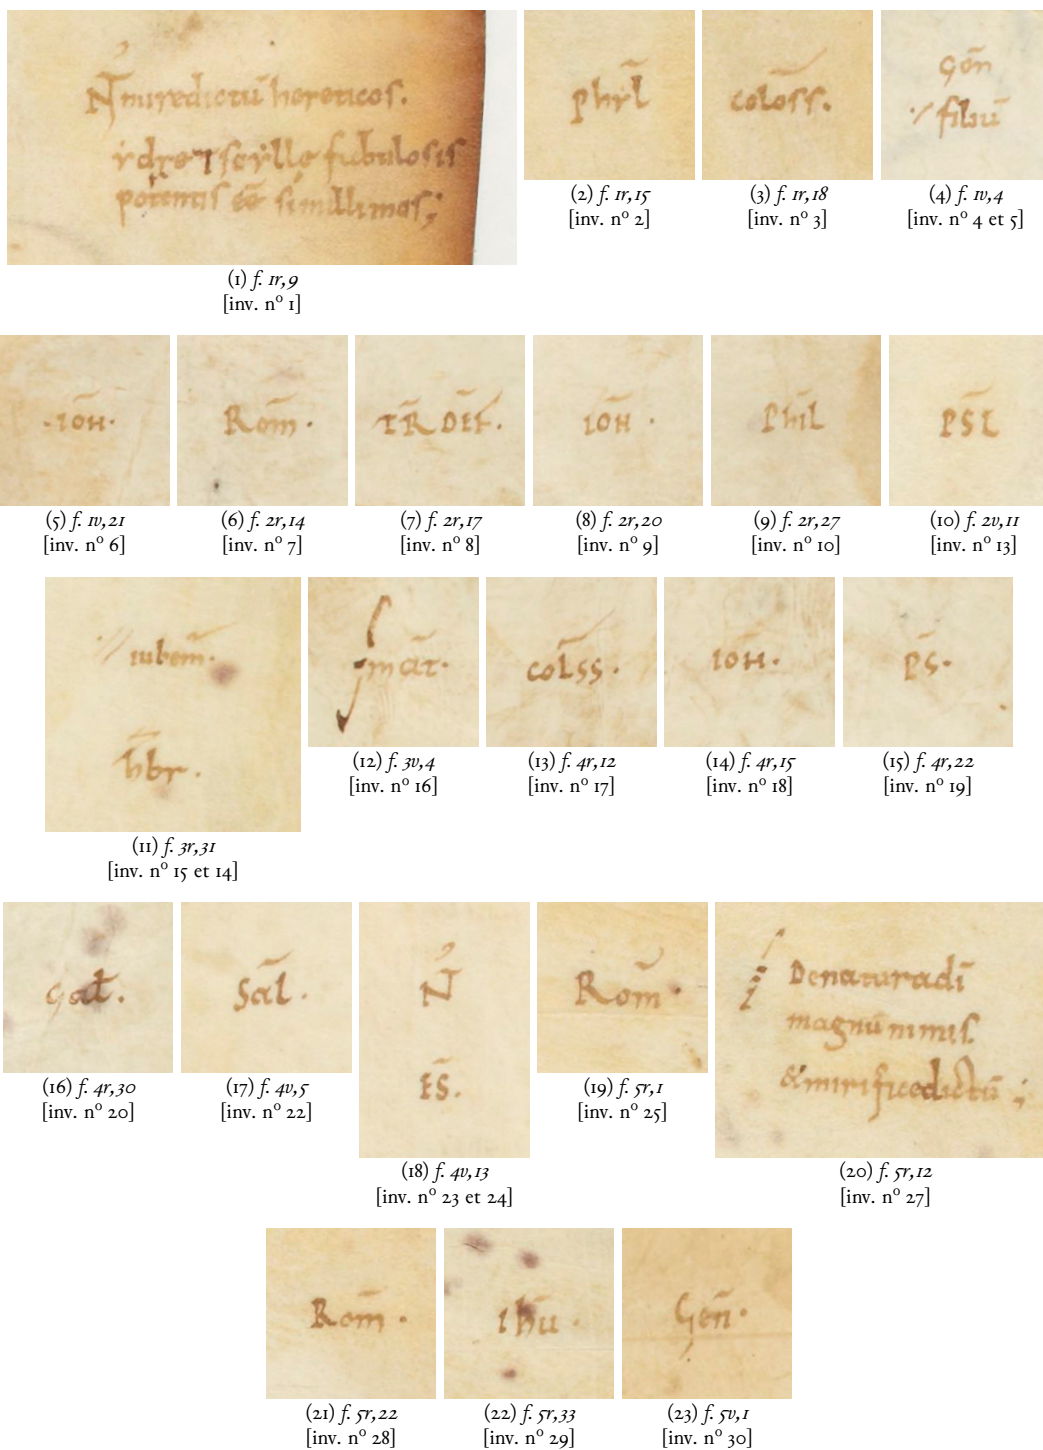 N̄ miredictū hereticos.
ydre & scylle fabulosis
potentis eē simillimos;
phyl
coloss.
(1) f. 1r,9
[inv. nº 1]
(2) f. 1r,15
[inv. nº 2]
(3) f. 1r,18
[inv. nº 3]
gēn
filiū
(4) f. 1v,4
[inv. nº 4 et 5]
·IOH·
Rom̄·
TR DEF.
IOH·
Phil
PSL
(5) f. 1v,21
[inv. nº 6]
(6) f. 2r,14
[inv. nº 7]
(7) f. 2r,17
[inv. nº 8]
(8) f. 2r,20
[inv. nº 9]
(9) f. 2r,27
[inv. nº 10]
(10) f. 2v,11
[inv. nº 13]
iubem̄·
hbr.
(11) f. 3r,31
[inv. nº 15 et 14]
mat·
(12) f. 3v,4
[inv. nº 16]
colss·
(13) f. 4r,12
[inv. nº 17]
IOH·
(14) f. 4r,15
[inv. nº 18]
ps·
(15) f. 4r,22
[inv. nº 19]
gal.
(16) f. 4r,30
[inv. nº 20]
Sal·
(17) f. 4v,5
[inv. nº 22]
N̄
ES.
(18) f. 4v,13
[inv. nº 23 et 24]
Rom·
(19) f. 5r,1
[inv. nº 25]
Denaturadī
magnū nimis
&mirificedictū;
(20) f. 5r,12
[inv. nº 27]
Rom̄·
(21) f. 5r,22
[inv. nº 28]
ihu·
(22) f. 5r,33
[inv. nº 29]
Gen̄·
(23) f. 5v,1
[inv. nº 30]